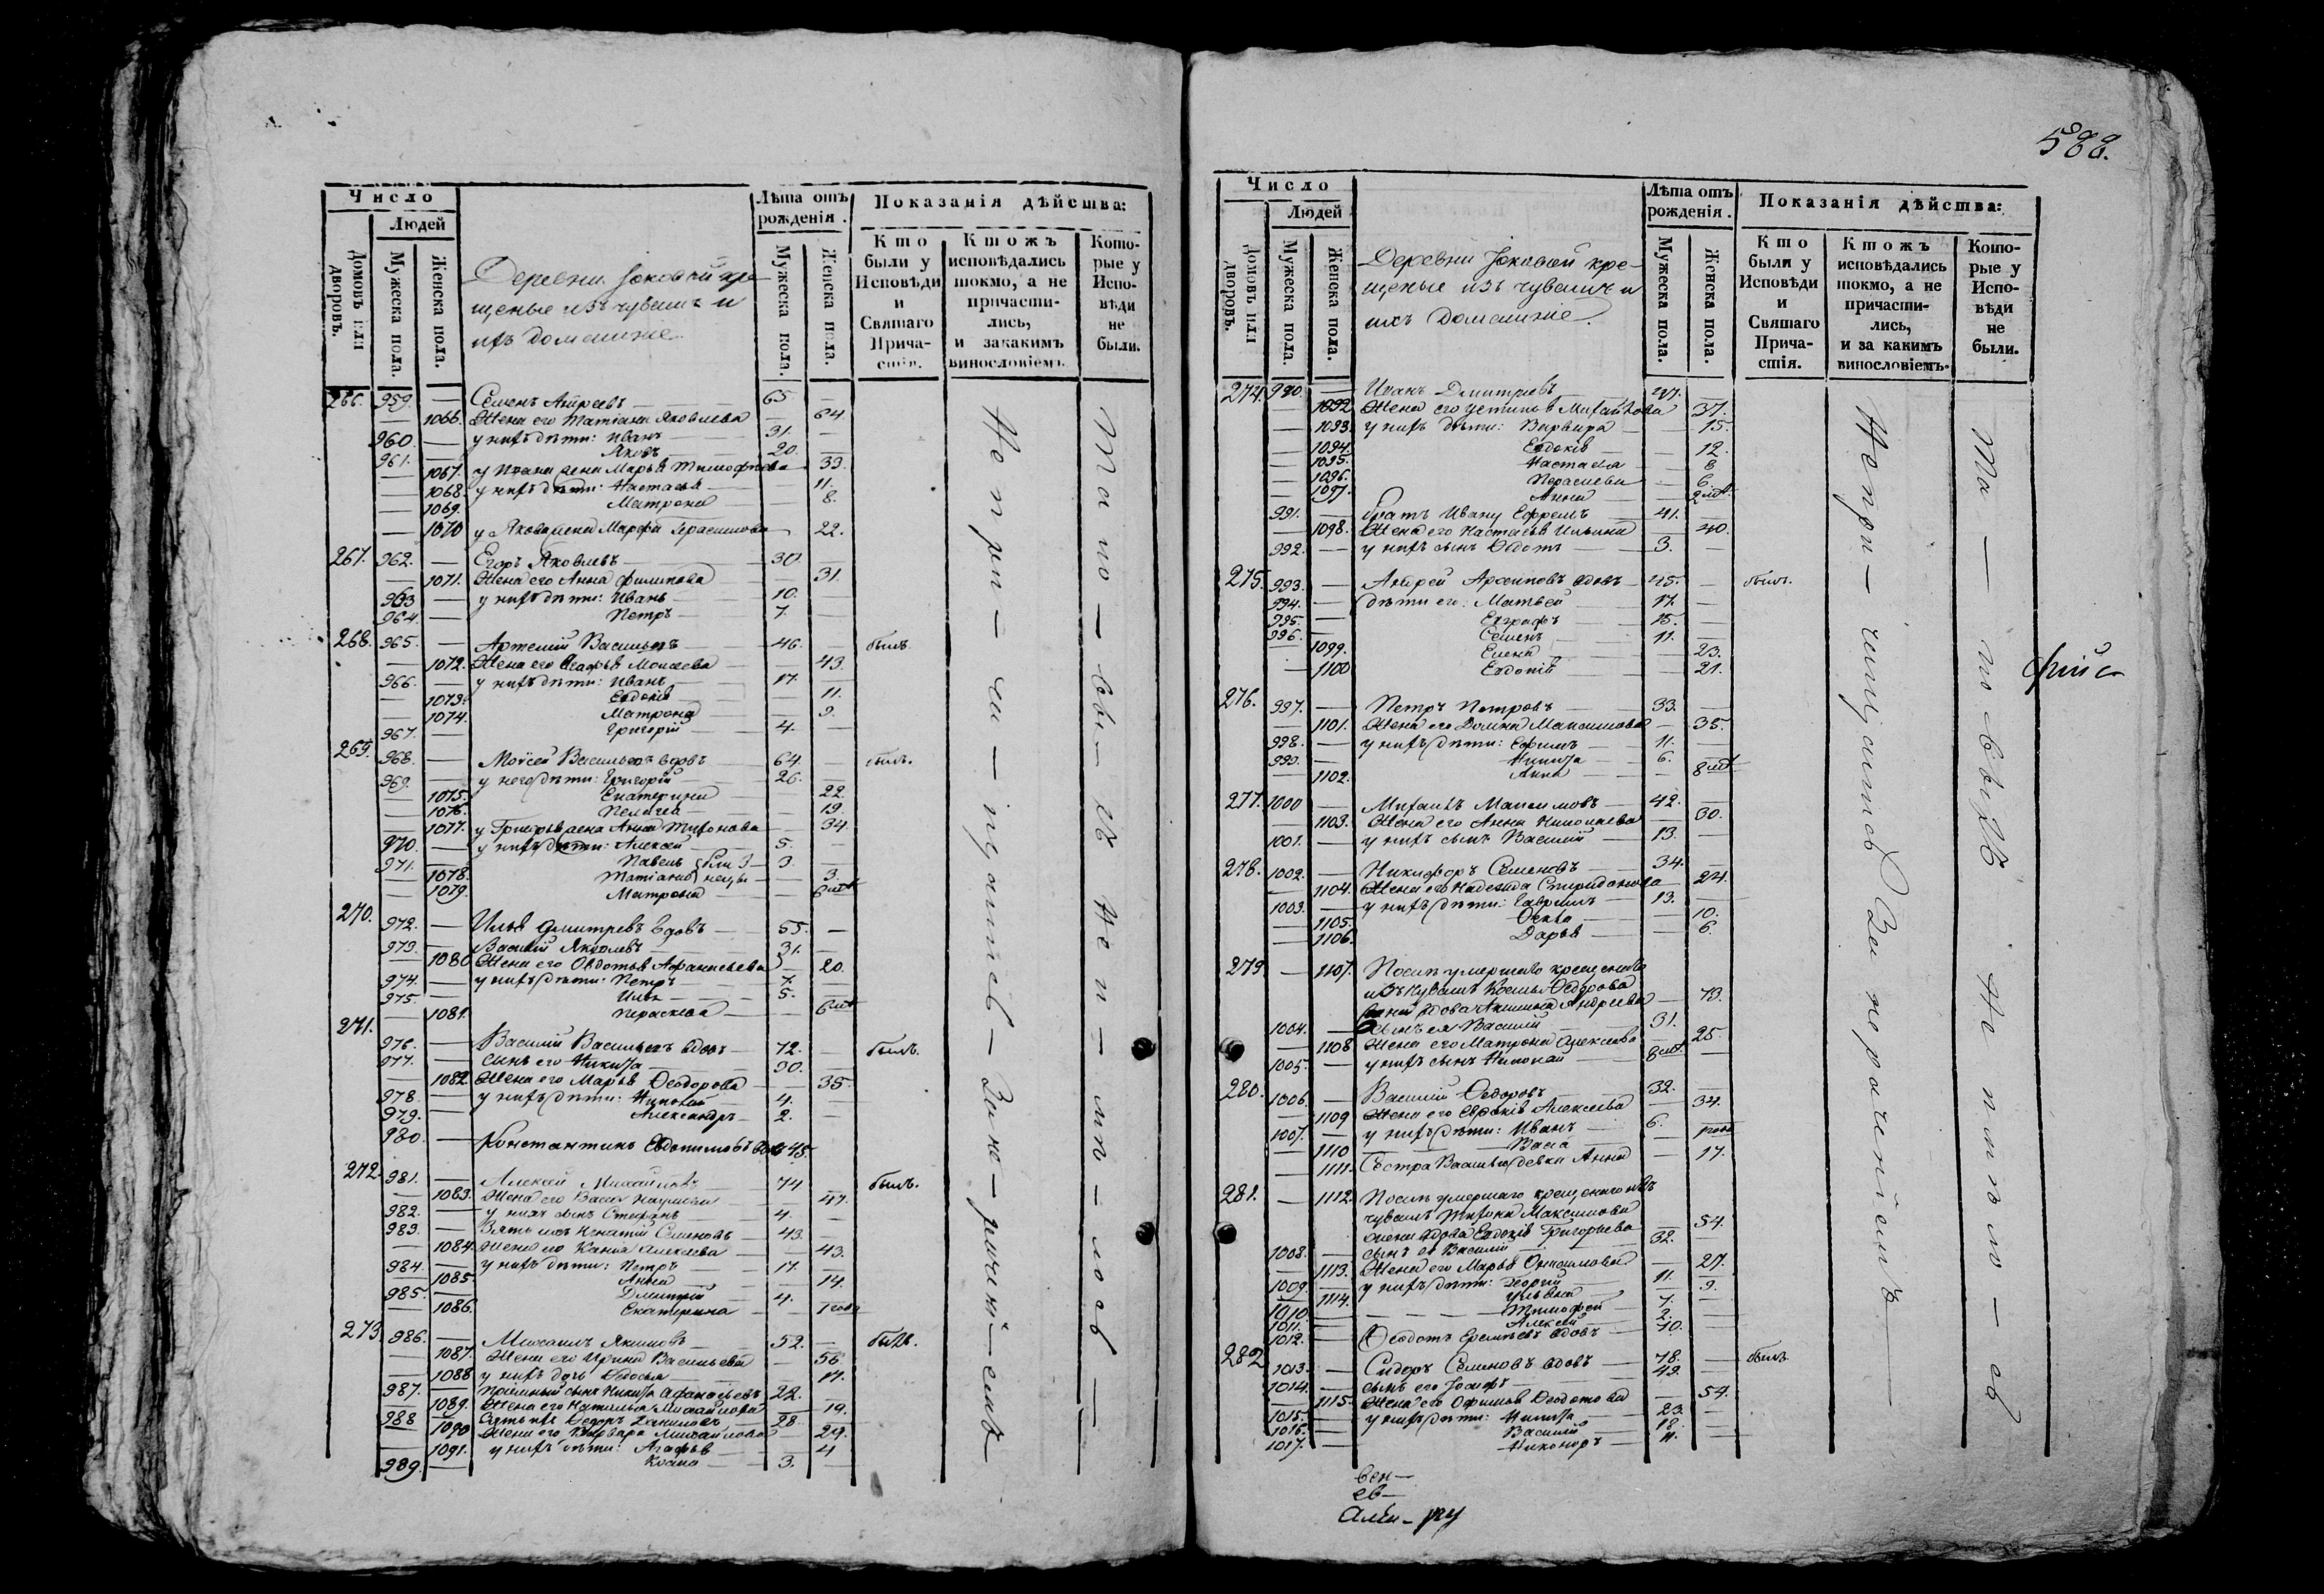 588.
Число
Людей
Домовъ или дворовъ.
Мужеска пола.
Женска пола.
Деревни Іоковой кре-
щеные изъ чувашъ и
ихъ домашніе
Лѣта отъ рожденія.
Мужеска пола.
Женска пола.
Показанія дѣйства:
Кто были у Исповѣди и Святаго Причастія.
Ктожъ исповѣдались токмо, а не причастились, и закакимъ винословіемъ.
Которые у Исповѣди не были.
266. 959. — Семенъ Андреевъ 65 —
— 1066. Жена его Татіана Яковлева — 64.
960. — у нихъ дѣти: Иванъ 31. —
961. — Яковъ 20. —
— 1067. у Ивана жена Марья Тимофеева — 33.
— 1068. у нихъ дѣти: Настасья — 11.
— 1069. Матрона — 8.
— 1070 у Якова жена Марфа Герасимова — 22.
267. 962. — Егоръ Яковлевъ 30. —
— 1071. Жена его Анна Филипова — 31.
963 — у нихъ дѣти: Иванъ 10. —
964. — Петръ 7. —
268. 965. — Артемій Васильевъ 46. — былъ.
— 1072. Жена его Агафья Моисеева — 43.
966. — у нихъ дѣти: Иванъ 17. —
— 1073. Евдокія — 11.
— 1074. Матрона — 9.
967. — Григорій 4. —
269. 968. — Моѵсей Васильевъ вдовъ 64. — былъ.
969. — у него дѣти: Григорій 26. —
— 1075. Екатерина — 22.
— 1076. Пелагея — 19.
— 1077. у Григорья жена Анна Тихонова — 34.
970. — у нихъ дѣти: Алексей 5. —
971. — Павелъ 3. —
— 1078. Татіана — 3.
— 1079. Матрона — 6
270. 972. — Илья Дмитревъ вдовъ 55. —
973. — Василій Яковлевъ 31. —
— 1080 Жена его Овдотья Афанасьева — 20.
974. — у нихъ дѣти: Петръ 7. —
975. — Илья 5. —
— 1081. Параскева — 6
271. 976. — Василій Васильевъ вдовъ 72. — былъ.
977. — сынъ его Никита 30. —
— 1082. Жена его Марья Ѳеодорова — 35.
978. — у нихъ дѣти: Николай 4. —
979. — Александръ 2. —
980. — Константинъ Евдокимовъ вдовъ 45.
272. 981. — Алексѣй Михайловъ 74 — былъ.
— 1083. Жена его Васса — 47.
982. — у нихъ сынъ Степанъ 4. —
983. — Зять ихъ Игнатій Семеновъ 43. —
— 1084. Жена его Ксенія Алексева — 43.
984. — у нихъ дѣти: Петръ 17. —
— 1085. Анна — 14.
985. — Дмитрій 4. —
— 1086. Екатерина — 1 годъ
273. 986. — Михаилъ Якимовъ 52. — былъ.
— 1087. Жена его Ирина Васильева — 56.
— 1088 у нихъ дочь Ѳедосья — 17.
987. — Пріемный сынъ Никита Афанасьевъ 22. —
— 1089. Жена его Наталья Михайлова — 19.
988 — Зять ихъ Ѳедоръ Даниловъ 28. —
— 1090 Жена его Варвара Михайлова — 29.
— 1091. у нихъ дѣти: Агафья — 4
989. — Козма 3. —
Число
Людей
Домовъ или дворовъ.
Мужеска пола.
Женска пола.
Деревни Іоковой кре-
щеные изъ чувашъ и
ихъ домашніе.
Лѣта отъ рожденія.
Мужеска пола.
Женска пола.
Показанія дѣйства:
Кто были у Исповѣди и Святаго Причастія.
Ктожъ исповѣдались токмо, а не причастились, и за какимъ винословіемъ.
Которые у Исповѣди не были.
274. 990. — Иванъ Дмитревъ 47. —
— 1092 Жена его Устинья Михайлова — 37.
— 1093. у нихъ дѣти: Варвара — 15.
— 1094. Евдокія — 12.
— 1095. Настасья — 8
— 1096. Параскева — 6.
— 1097. Анна — 2
991. — братъ Ивану Ефремъ 41. —
— 1098. Жена его Настасья Ильина — 40.
992. — у нихъ сынъ Ѳедотъ 3. —
275. 993. — Андрей Архиповъ вдовъ 45. — былъ.
994. — дѣти его: Матвей 17. —
995. — Евграфъ 15. —
996. — Семенъ 11. —
— 1099. Елена — 23.
— 1100 Евдокія — 21.
276. 997. — Петръ Петровъ 33. —
— 1101. Жена его Домна Максимова — 35.
998. — у нихъ дѣти: Ефимъ 11. —
999. — Никита 6. —
— 1102. Анна — 8
277. 1000 — Михаилъ Максимовъ 42. —
— 1103. Жена его Анна Николаева — 30.
1001. — у нихъ сынъ Василій 13. —
278. 1002. — Никифоръ Семеновъ 34. —
— 1104. Жена его Надежда Спиридонова — 24.
1003. — у нихъ дѣти: Гаврилъ 13. —
— 1105. Ѳекла — 10.
— 1106. Дарья — 6.
279. — 1107. Послѣ умершаго крещенаго
изъ чувашъ Козмы Ѳедорова
жена вдова Акилина Андреева — 73.
1004. — сынъ ея Василій 31. —
— 1108 Жена его Матрона Алексева — 25.
1005. — у нихъ сынъ Николай 8 —
280. 1006. — Василій Ѳедоровъ 32. —
— 1109 Жена его Евдокія Алексева — 34.
1007. — у нихъ дѣти: Иванъ 6. —
— 1110 Васса — годъ
— 1111. Сестра Василья девка Анна — 17.
281. — 1112. Послѣ умершаго крещенаго изъ
чувашъ Тихона Максимова
жена вдова Евдокія Григорьева — 54.
1008. — сынъ ея Василій 32. —
— 1113. Жена его Марья Онисимова — 27.
1009. — у нихъ дѣти: Георгій 11. —
— 1114. Ульяна — 9.
1010. — Тимофей 7. —
1011. — Алексѣй 2. —
1012. — Ѳеодотъ Еремѣевъ вдовъ 70. —
282 1013. — Сидоръ Семеновъ вдовъ 78. — былъ.
1014. — сынъ его Іосифъ 49. —
— 1115. Жена его Офимья Ѳеодотова — 54.
1015. — у нихъ дѣти: Никита 23. —
1016. — Василій 18. —
1017. — Никоноръ 11. —